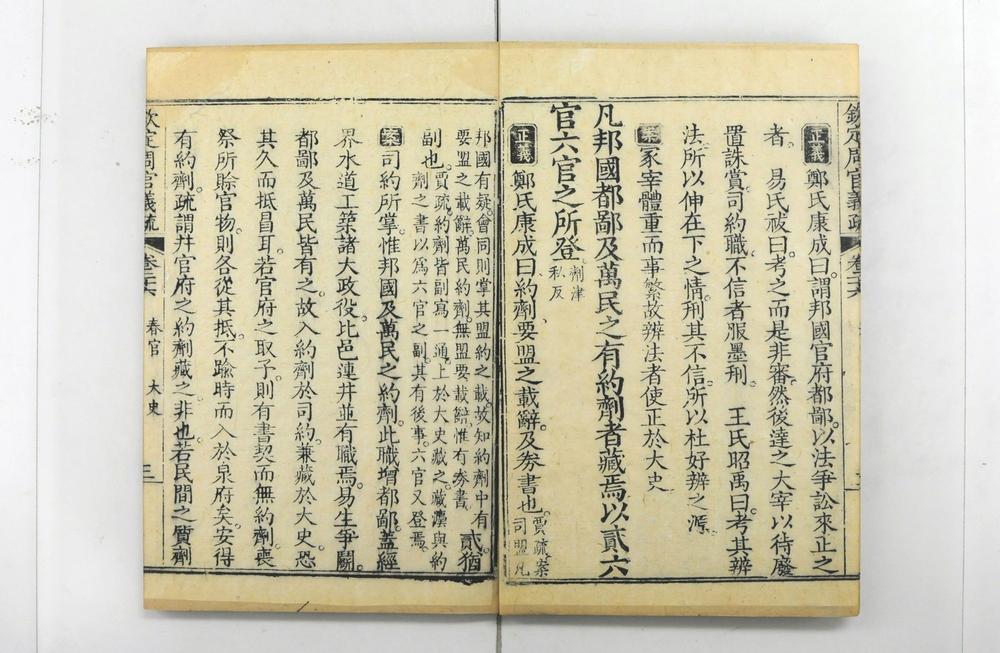 欽定周官義疏 卷二十六
正義 鄭氏康成曰。謂邦國官府都鄙。以法爭訟來正之
者。 易氏祓曰。考之而是非審。然後達之大宰以待廢
置誅賞。司約職。不信者服墨刑。 王氏昭禹曰。考其辨
法。所以伸在下之情。刑其不信。所以杜好辨之
案 冢宰體重而事繁。故辨法者使正於大史
凡邦國都鄙及萬民之有約劑者藏焉以貳六
官六官之所登 劑津
私反
正義 鄭氏康成曰。約劑。要盟之載辭及券書也。 賈疏。案
司盟。凡
邦國有疑。會同則掌其盟約之載。故知約劑中有
要盟之載辭。萬民約劑。無盟要載辭。惟有券書。
貳。猶
副也。 賈疏。約劑皆副寫一通。上於大史藏之。藏法與約
劑之書以爲六官之副。其有後事。六官又登焉。
案 司約所掌。惟邦國及萬民之約劑。此職增都鄙。蓋經
界水道工築諸大政役。比邑連井並有職焉。易生爭鬭。
都鄙及萬民皆有之。故入約劑於司約。兼藏於大史。恐
其久而抵冒耳。若官府之取予。則有書契而無約劑。喪
祭所賒官物。則各從其抵。不踰時而入於泉府矣。安得
有約劑。疏謂幷官府之約劑藏之。非也。若民間之質劑
欽定周官義疏 卷二十六 春官 大史 三